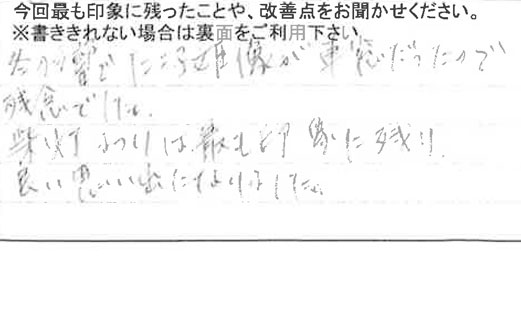 今回最も印象に残ったことや、改善点をお聞かせください。
※書ききれない場合は裏面をご利用下さい。
冬の雪でたつ子姫像が車窓だったので
残念でした。
柴灯まつりは最も印象に残り、
良い思い出になりました。